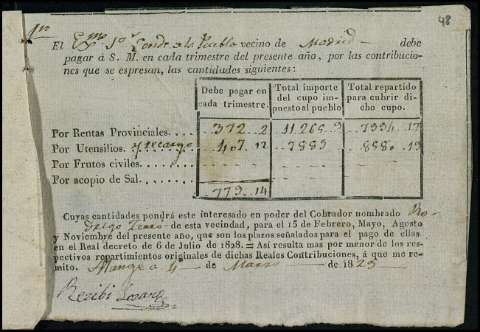 48
El Exmo. Sor. Conde de la Puebla vecino de Madrid debe
pagar á S. M. en cada trimestre del presente año, por las contribucio-
nes que se espresan, las cantidades siguientes:
Debe pagar en cada trimestre. Total importe del cupo impuesto al pueblo Total repartido para cubrir dicho cupo.
Por Rentas Provinciales.. . . . 372..2 11.265..9 7994..17
Por Utensilios. y recargo . . . 407..12 7883 8880..13
Por Frutos civiles. . . . . .
Por acopio de Sal. . . . . .
779..14
Cuyas cantidades pondrá este interesado en poder del Cobrador nombrado Ro-
de esta vecindad, para el 15 de Febrero, Mayo, Agosto
y Noviembre del presente año, que son los plazos señalados para el pago de ellas
en el Real decreto de 6 de Julio de 1828. = Así resulta mas por menor de los res-
pectivos repartimientos originales de dichas Reales Contribuciones, á que me re-
mito. á 4 de Marzo de 1829
Recibi